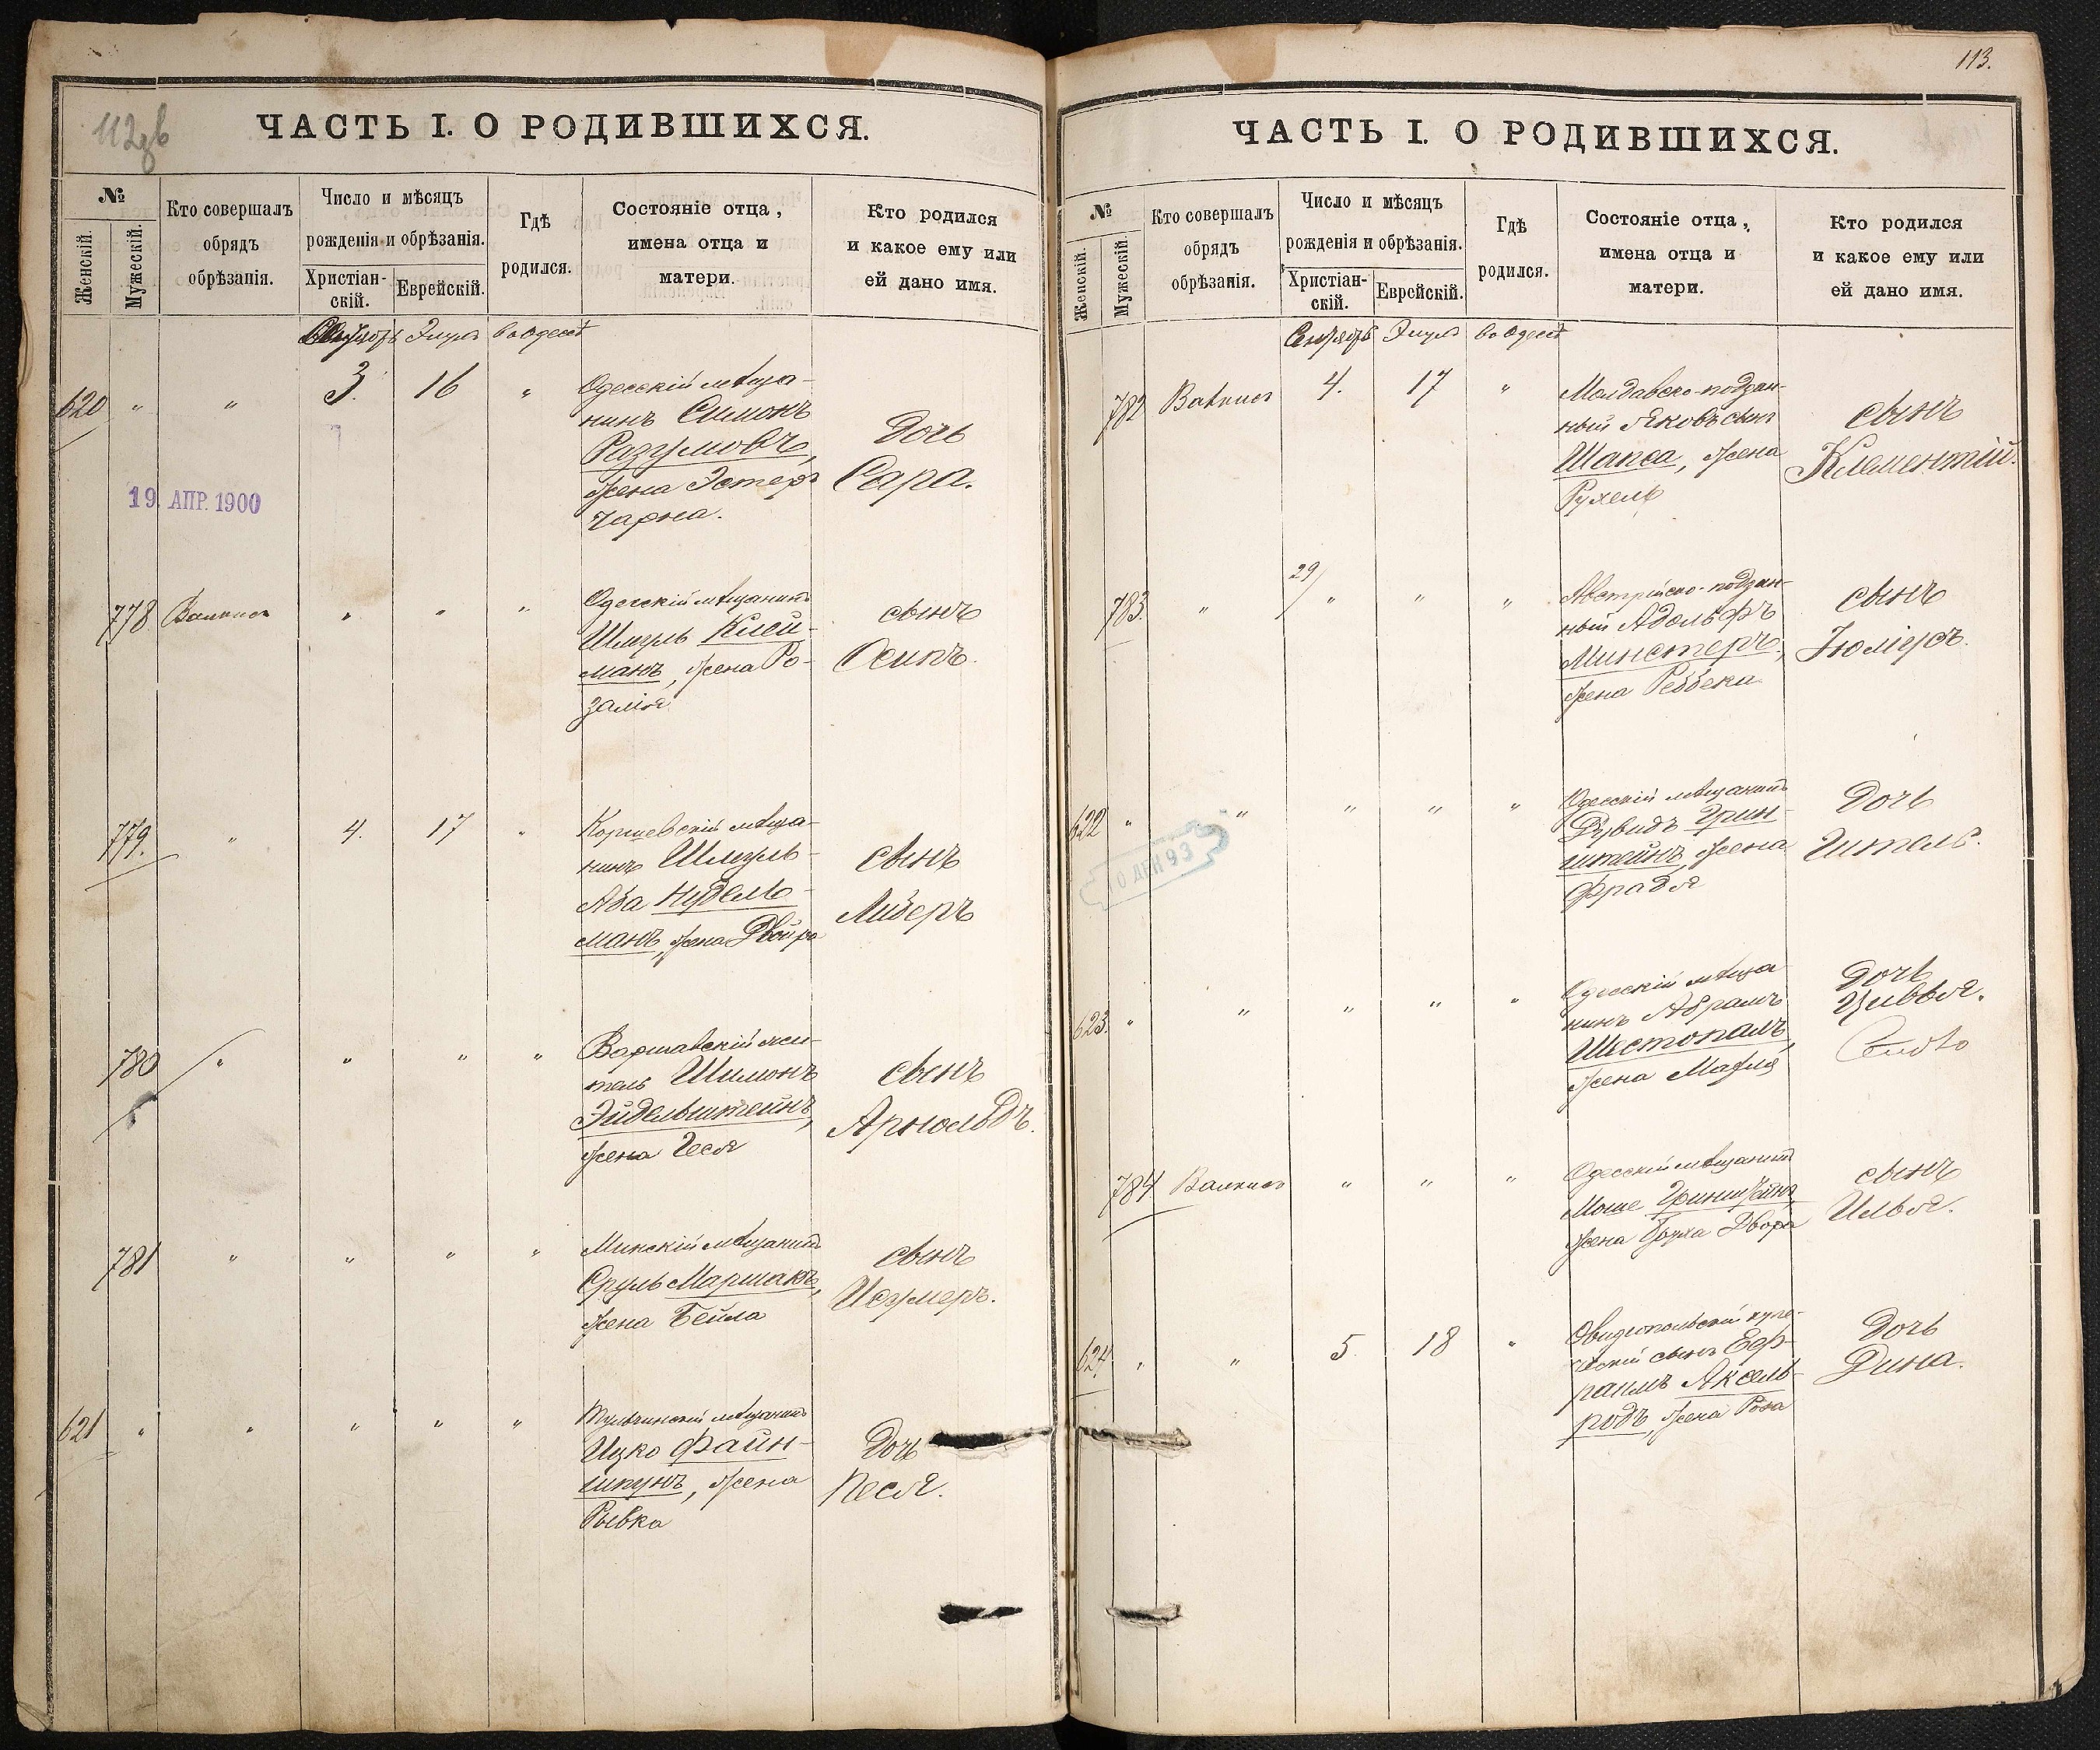 112об
ЧАСТЬ I. О РОДИВШИХСЯ.
№
Женскій.
Мужескій.
Кто совершалъ
обрядъ
обрѣзанія.
Число и мѣсяцъ
рожденія и обрѣзанія.
Христіан-
скій.
Еврейскій.
Гдѣ
родился.
Состояніе отца,
имена отца и
матери.
Кто родился
и какое ему или
ей дано имя.
Сентябрь Элулъ въ Одессѣ
620 " " 3. 16 "
Одесскій мѣща-
нинъ Симонъ
Разумовъ,
жена Эстеръ
Чарна.
Дочь
Сара.
19. АПР. 1900
778 " " "
Одесскій мѣщанинъ
Шмуль Клей-
манъ, жена Ро-
залія
сынъ
Осипъ.
779. " 4. 17 "
мѣща-
нинъ Шмуль-
Аба Нудель-
манъ, жена Двойра
сынъ
Либеръ
780 " " " "
Варшавскій жи-
тель Шимонъ
Эйдельштейнъ,
жена Геся
сынъ
Арнольдъ.
781 " " " "
Минскій мѣщанинъ
Сруль Маршакъ,
жена Бейла
сынъ
Исумеръ.
621 " " " " "
Тульчинскій мѣщанинъ
Ицко Файн-
шпунъ, жена
Рывка
Дочь
Песя.
113.
ЧАСТЬ I. О РОДИВШИХСЯ.
№
Женскій.
Мужескій.
Кто совершалъ
обрядъ
обрѣзанія.
Число и мѣсяцъ
рожденія и обрѣзанія.
Христіан-
скій.
Еврейскій.
Гдѣ
родился.
Состояніе отца,
имена отца и
матери.
Кто родился
и какое ему или
ей дано имя.
Сентябрь Элулъ въ Одессѣ
782 4. 17 "
Молдавско-поддан-
ный Яковъ сынъ
Шапса, жена
Рухель
сынъ
Клементій.
783. " 29/ " " "
Австрійско-поддан-
ный Адольфъ
Минстеръ,
жена Реббеки
сынъ
Юліусъ.
622 " " " " "
Одесскій мѣщанинъ
Дувидъ Грин-
штейнъ, жена
Фрадя
Дочь
Гитель.
623. " " " " "
Одесскій мѣща-
нинъ Абрамъ
Шестопалъ,
жена Матля
Дочь
Цивья.
784 " " "
Одесскій мѣщанинъ
Моше Гринштейнъ
жена Бруха Двора
сынъ
Илья.
624. " " 5 18 "
Овидіопольскій купе-
ческій сынъ Еф-
раимъ Аксель-
родъ, жена Роза
Дочь
Дина.